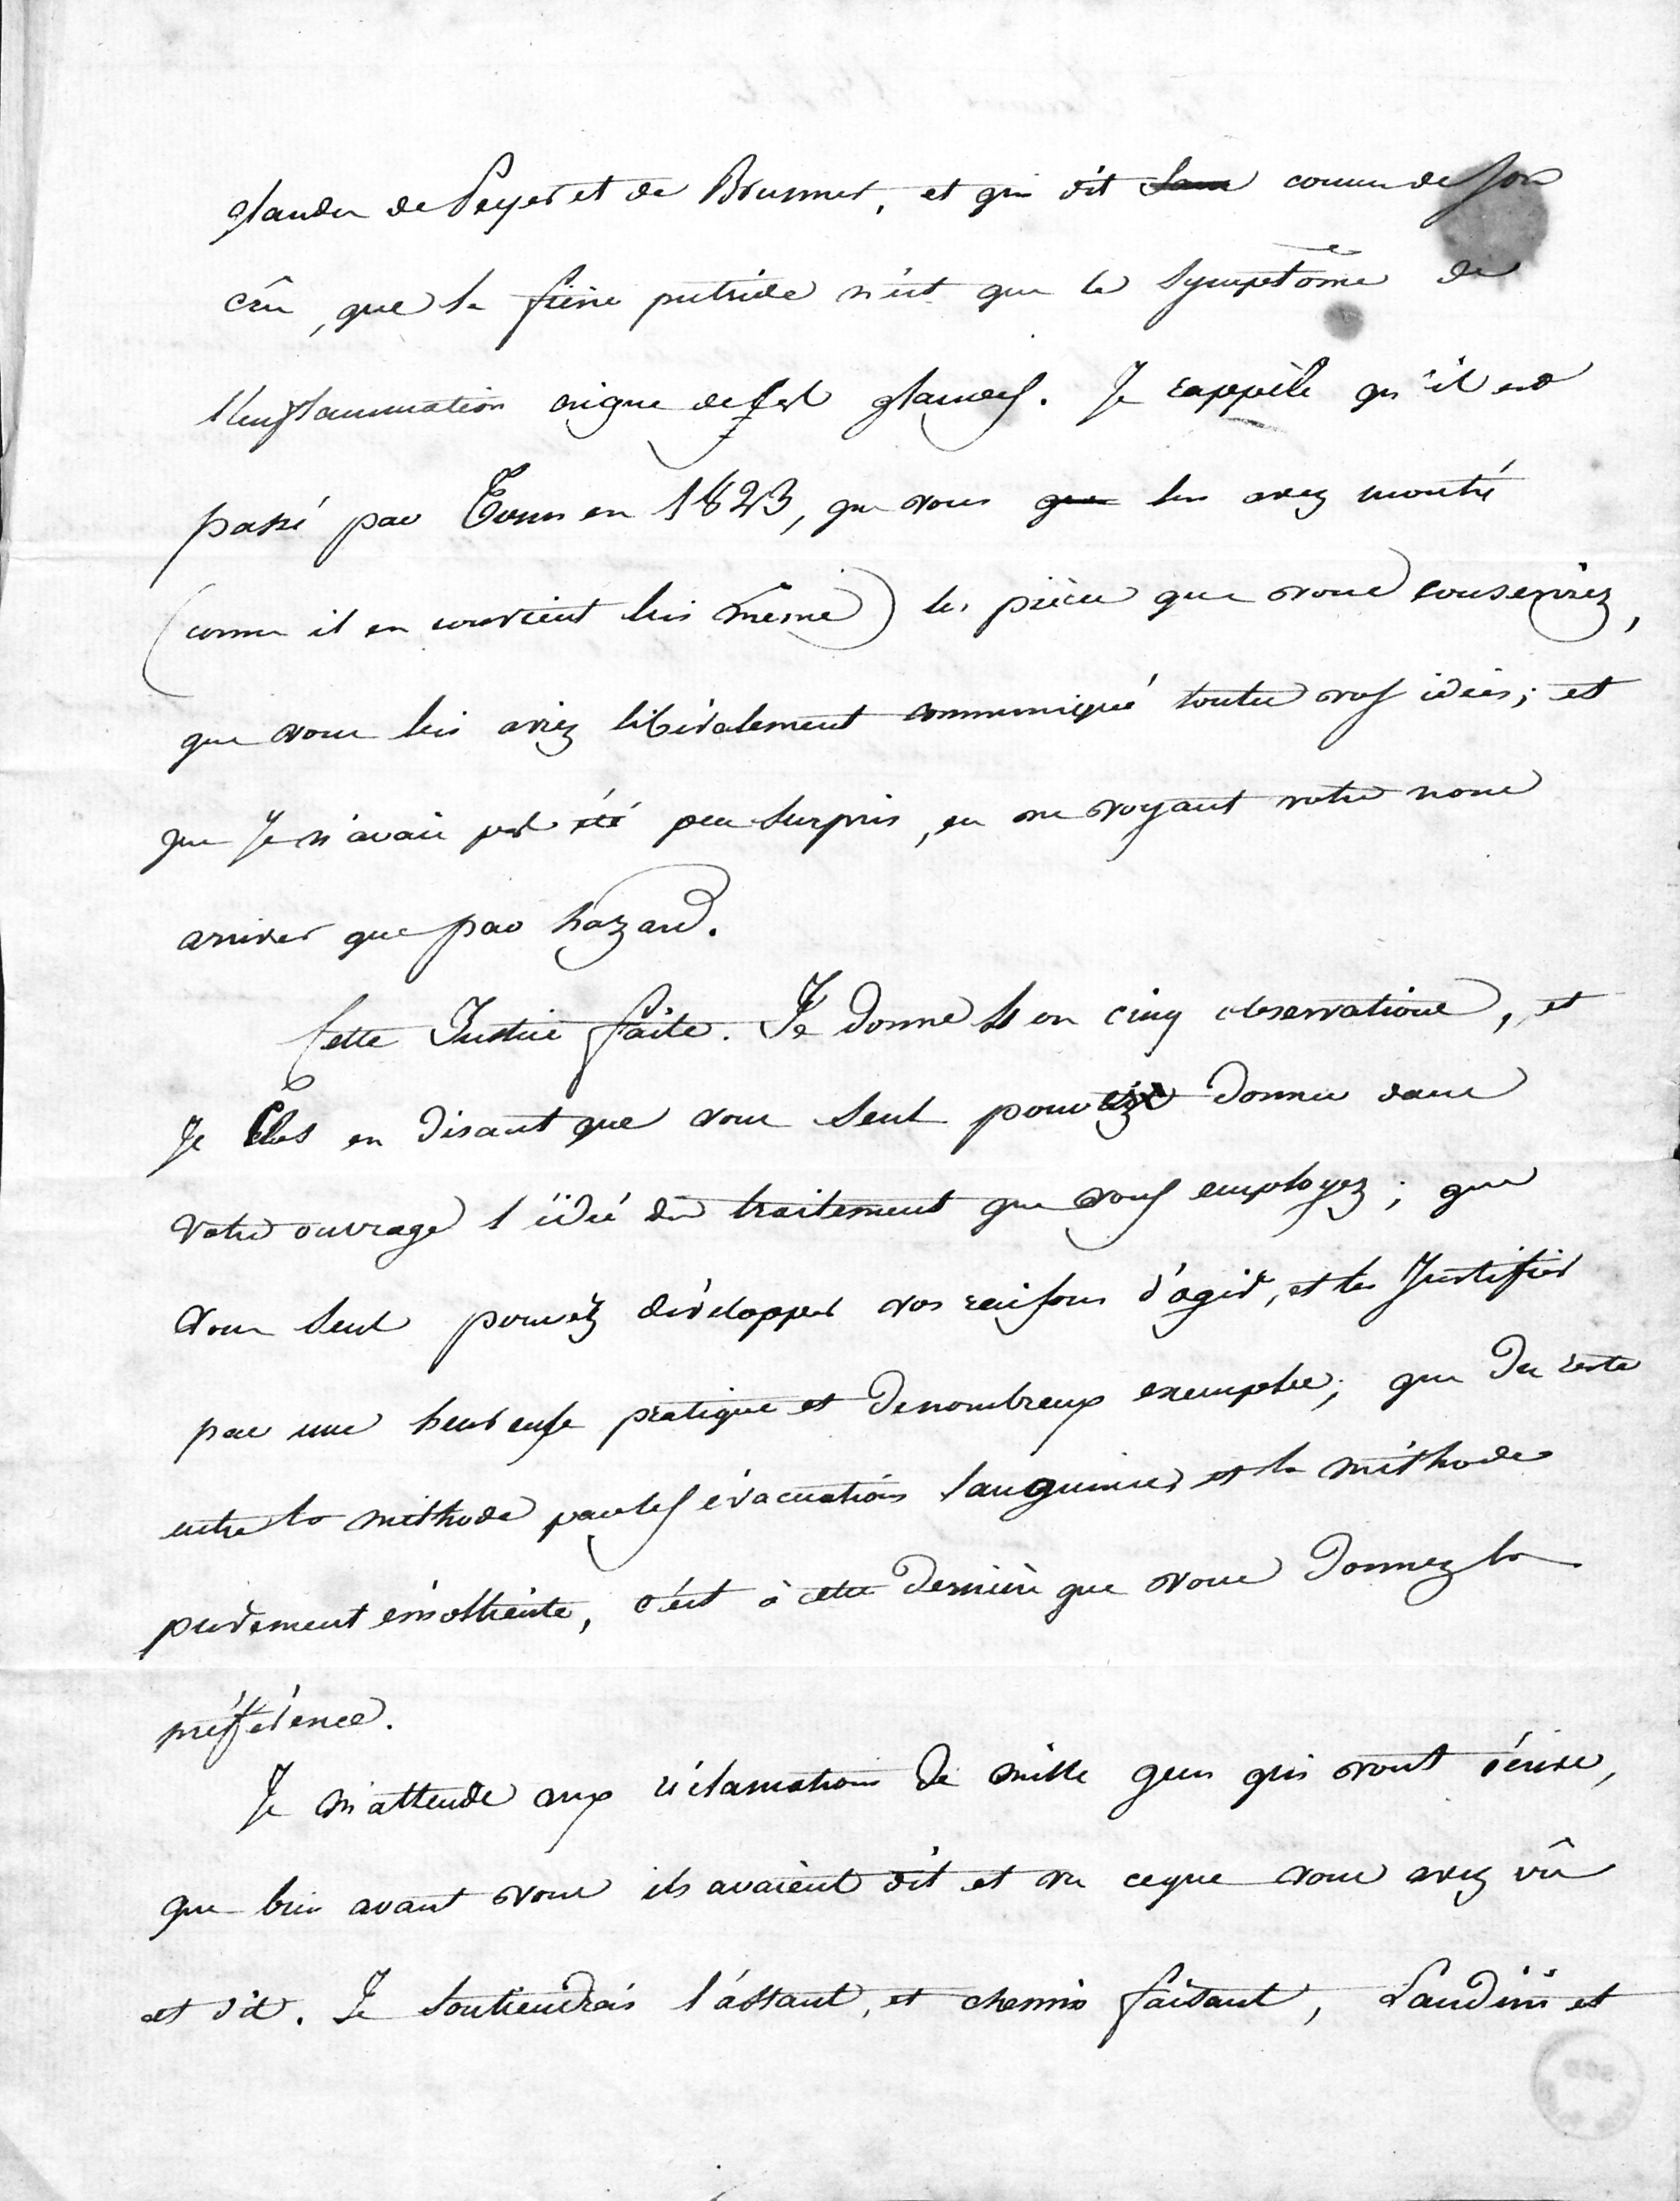 glandes de Peyer et de Brunner, et qui dit comme de son
crû, que la fièvre putride n'est que le symptôme de
l'inflammation aigue de ces glandes. Je rappèle qu'il est
passé par Tours en 1823, que vous lui avez montré
(comme il en convient lui même) les pièces que vous conserviez,
que vous lui aviez libéralement communiqué toutes vos idées; et
que Je n'avais pas été peu surpris, en ne voyant votre nom
arriver que par hazard.
Cette Justice faite. Je donne 4 ou cinq observations, et
Je clos en disant que vous seul pouvez donner dans
votre ouvrage l'idée du traitement que vous employez; que
vous seul pouvez développer vos raisons d'agir, et les Justifier
par une heureuse pratique et de nombreux exemples; que du reste
entre la méthode par les évacuations sanguines et la méthode
purement émolliente, c'est à cette dernière que vous donnez la
préférence.
Je m'attends aux réclamations de mille gens qui vont écrire,
que bien avant vous ils avaient dit et vu ce que vous avez vû
et dit. Je soutiendrais l'assaut, et chemin faisant, Landini et